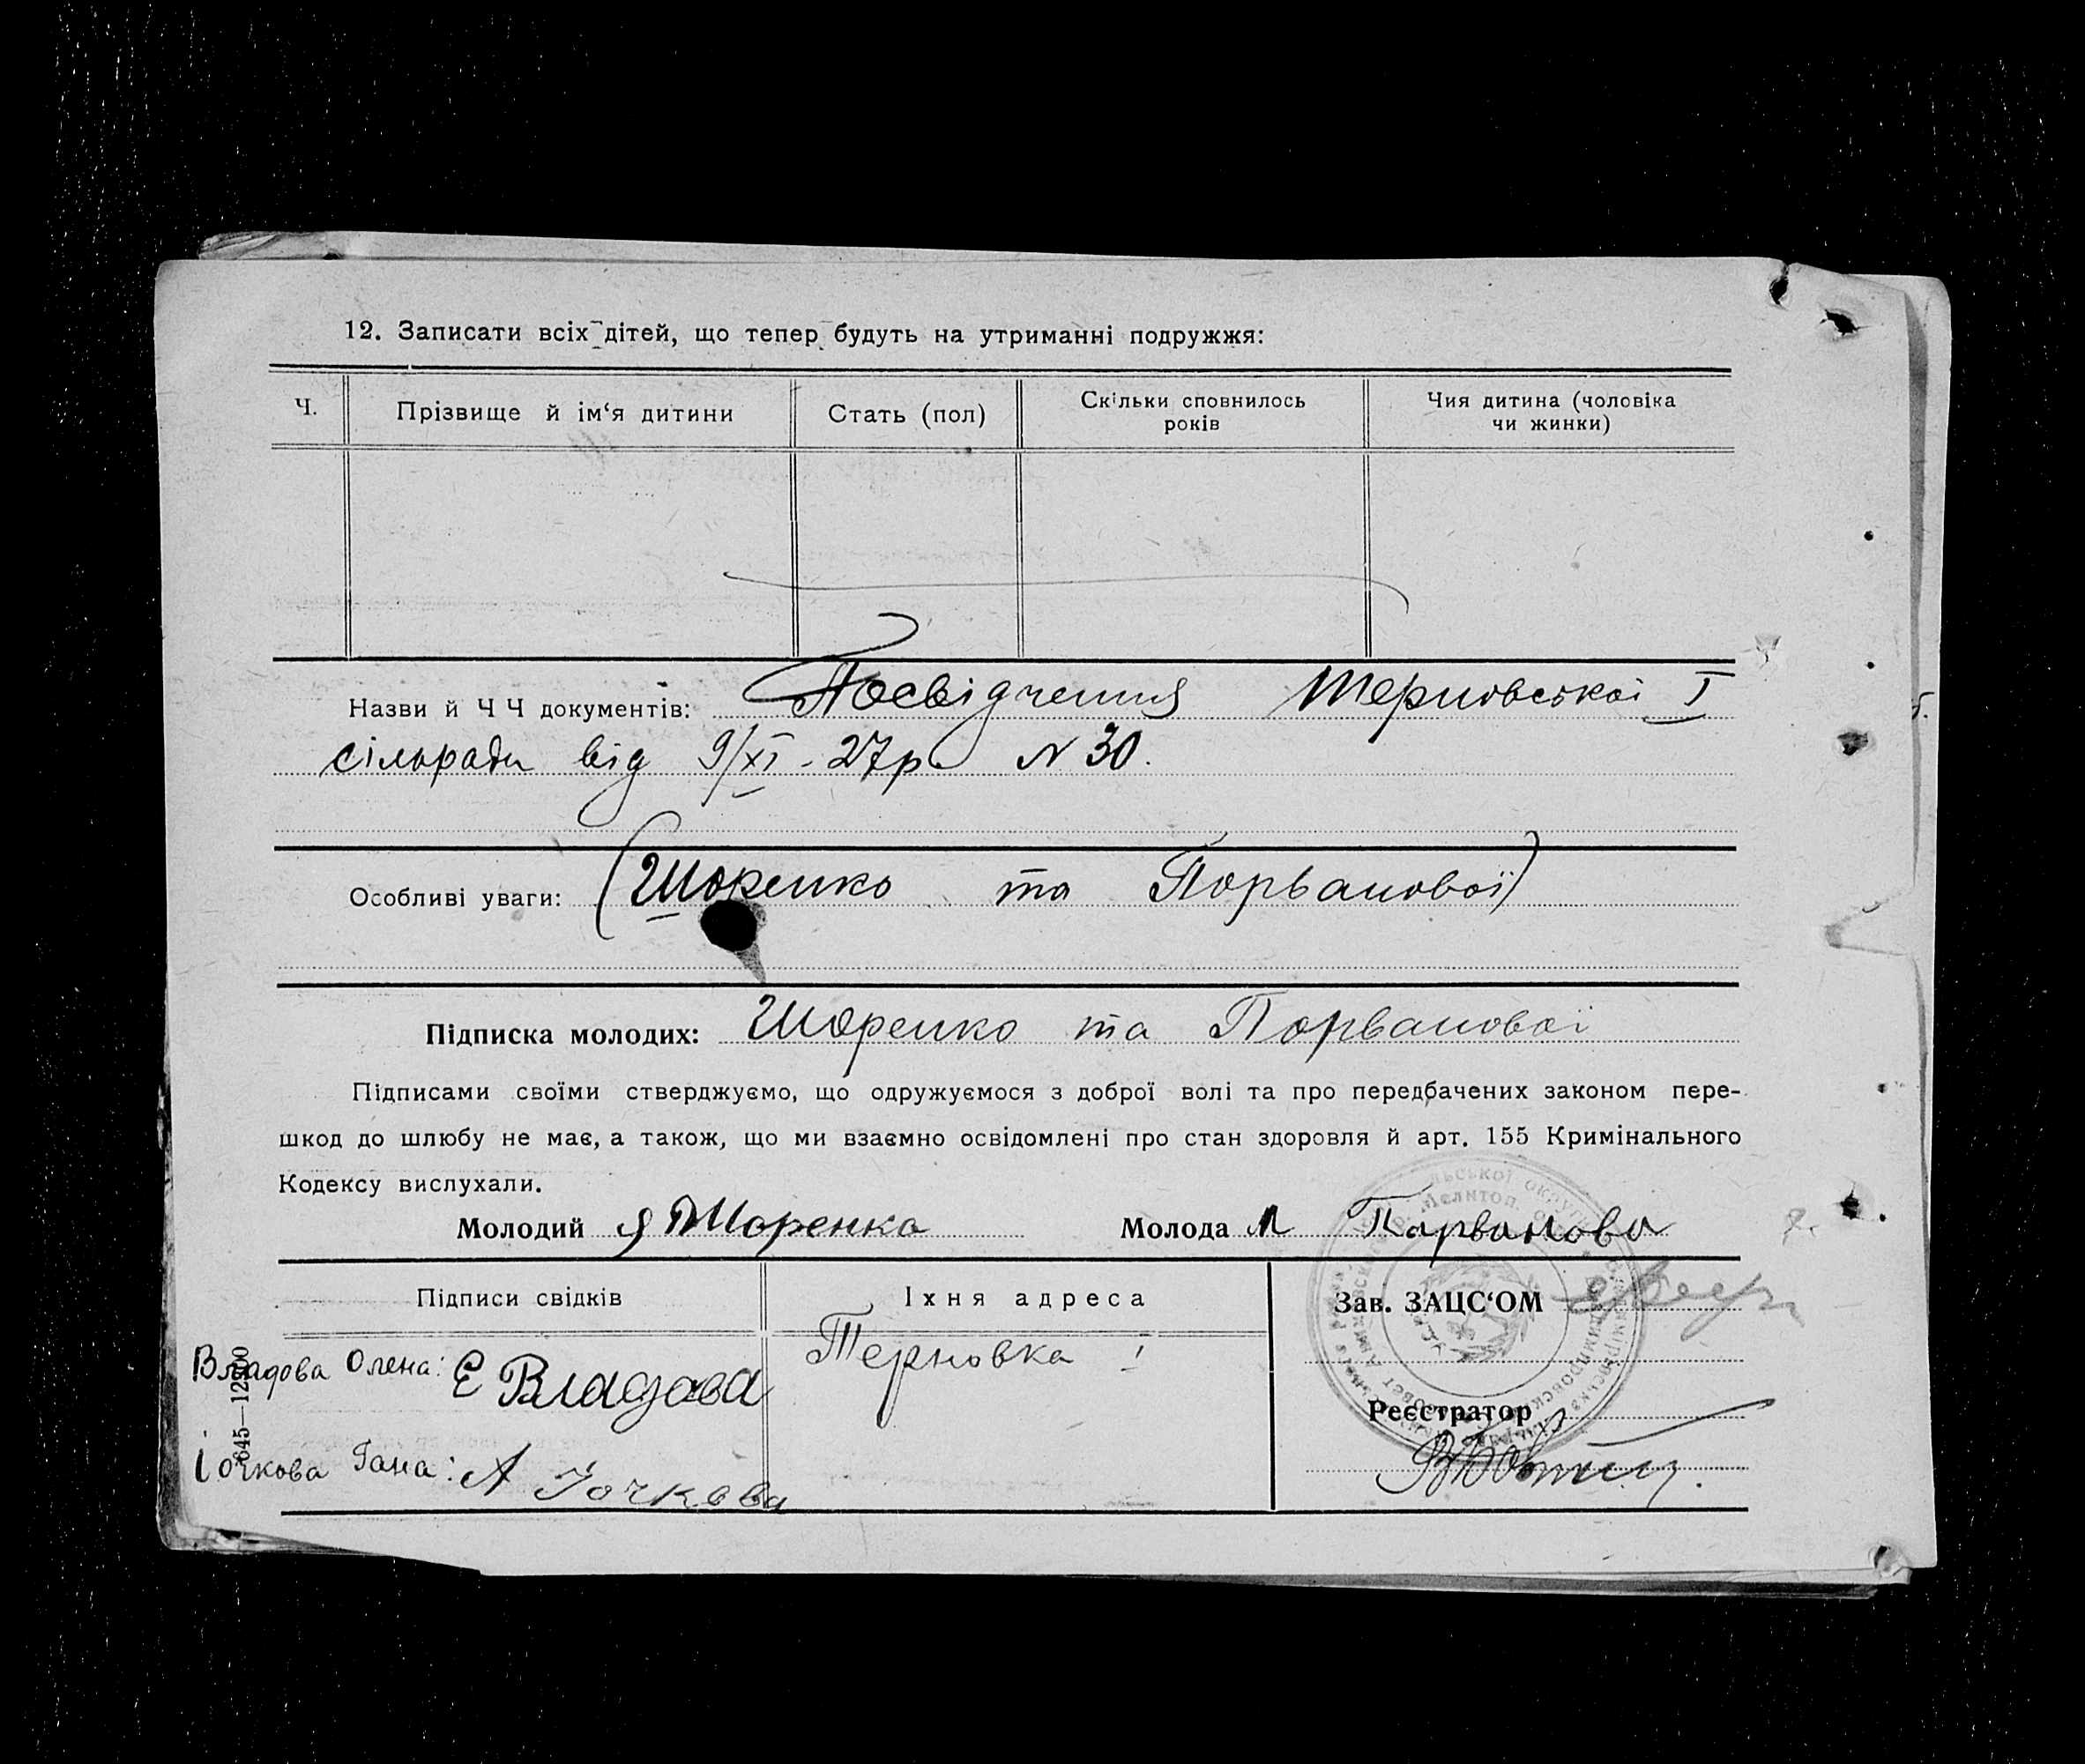 12. Записати всіх дітей, що тепер будуть на утриманні подружжя:
Ч. Прізвище й ім‘я дитини Стать (пол) Скільки сповнилось років Чия дитина (чоловіка чи жинки)
Назви й Ч Ч документів: Посвідчення Терновської І
сільради від 9/XI - 27р. N 30.
Особливі уваги: (Шоренко та Порванової)
Підписка молодих: Шоренко та Порванової
Підписами своїми стверджуємо, що одружуємося з доброї волі та про передбачених законом пере-
шкод до шлюбу не має, а також, що ми взаємно освідомлені про стан здоровля й арт. 155 Кримінального
Кодексу вислухали.
Молодий Шоренко Молода М Парванова
Підписи свідків Їхня адреса Зав. ЗАЦС‘ОМ
Владова Олена: Е Владова Терновка І
Реєстратор
Іочкова Гана: А Іочкова